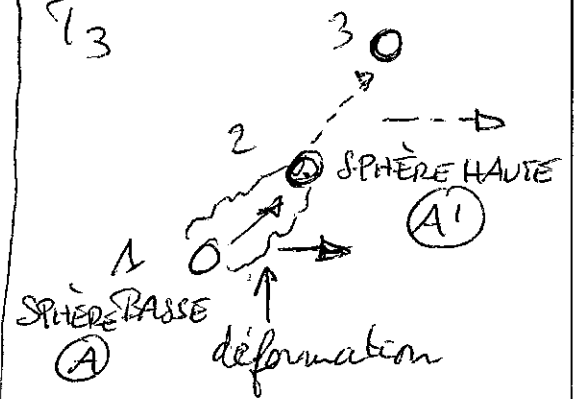 T3
3
2
SPHÈRE HAUTE
A'
1
SPHÈRE BASSE
A
déformation